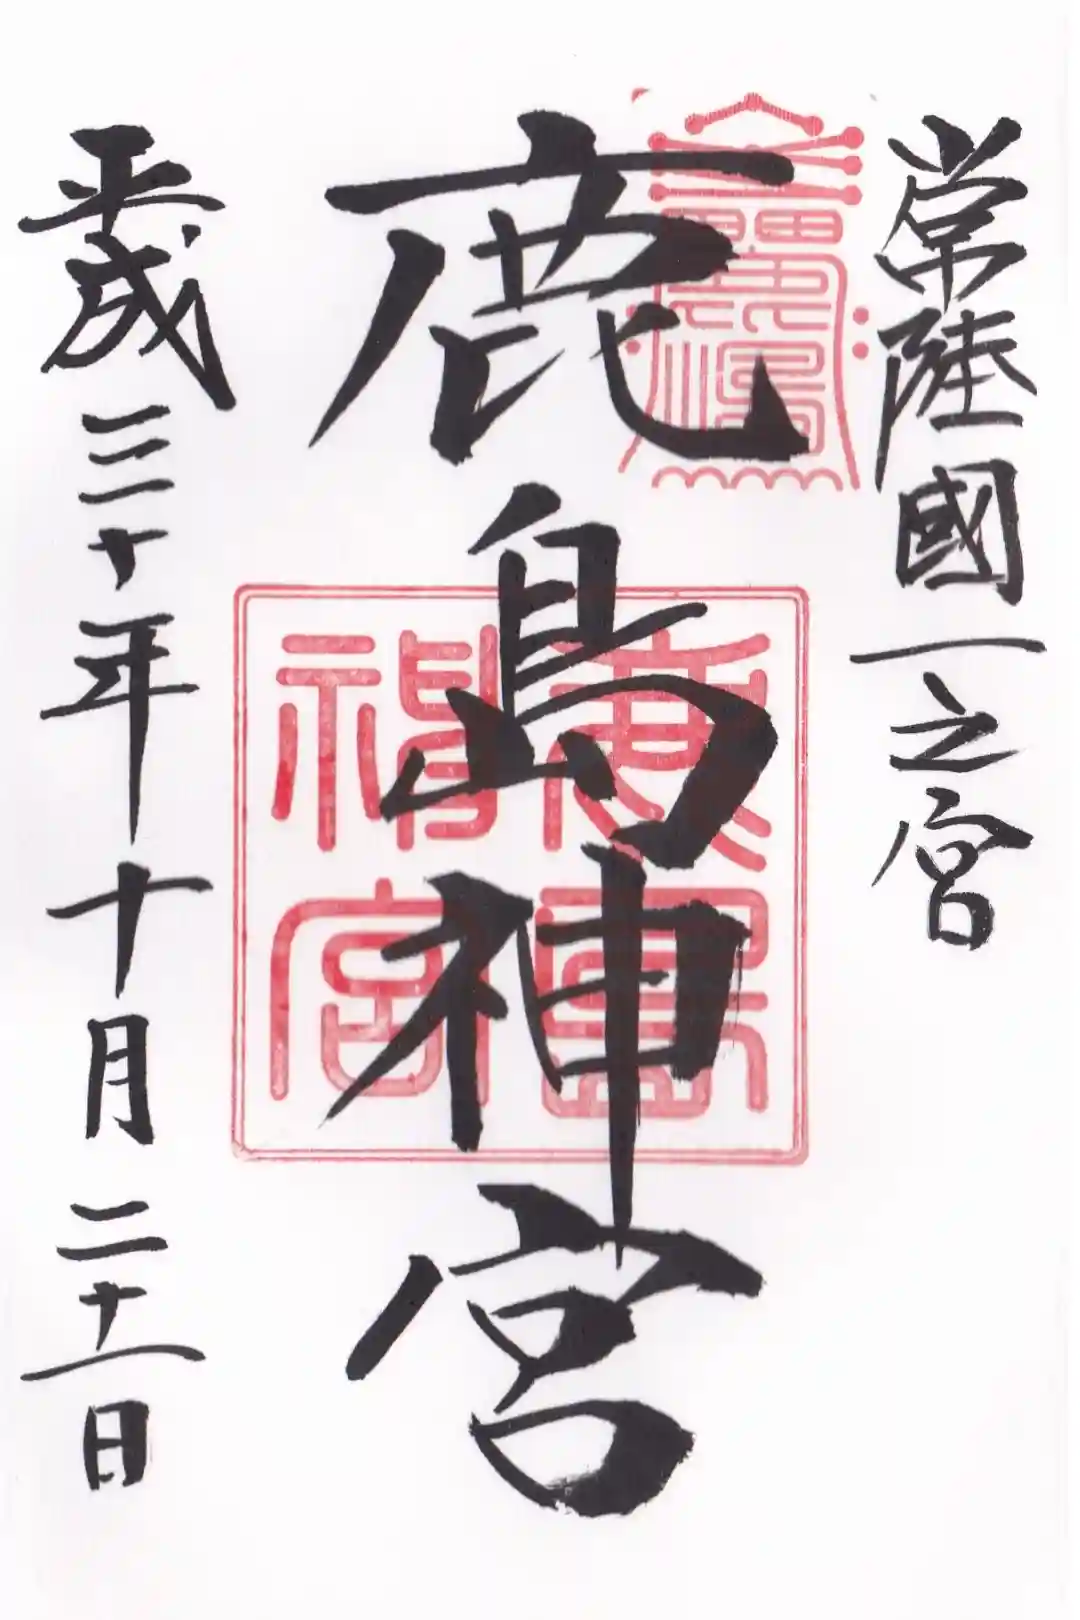 常陸國一之宮
鹿島神宮
平成三十年十月二十一日
鹿島
神宮